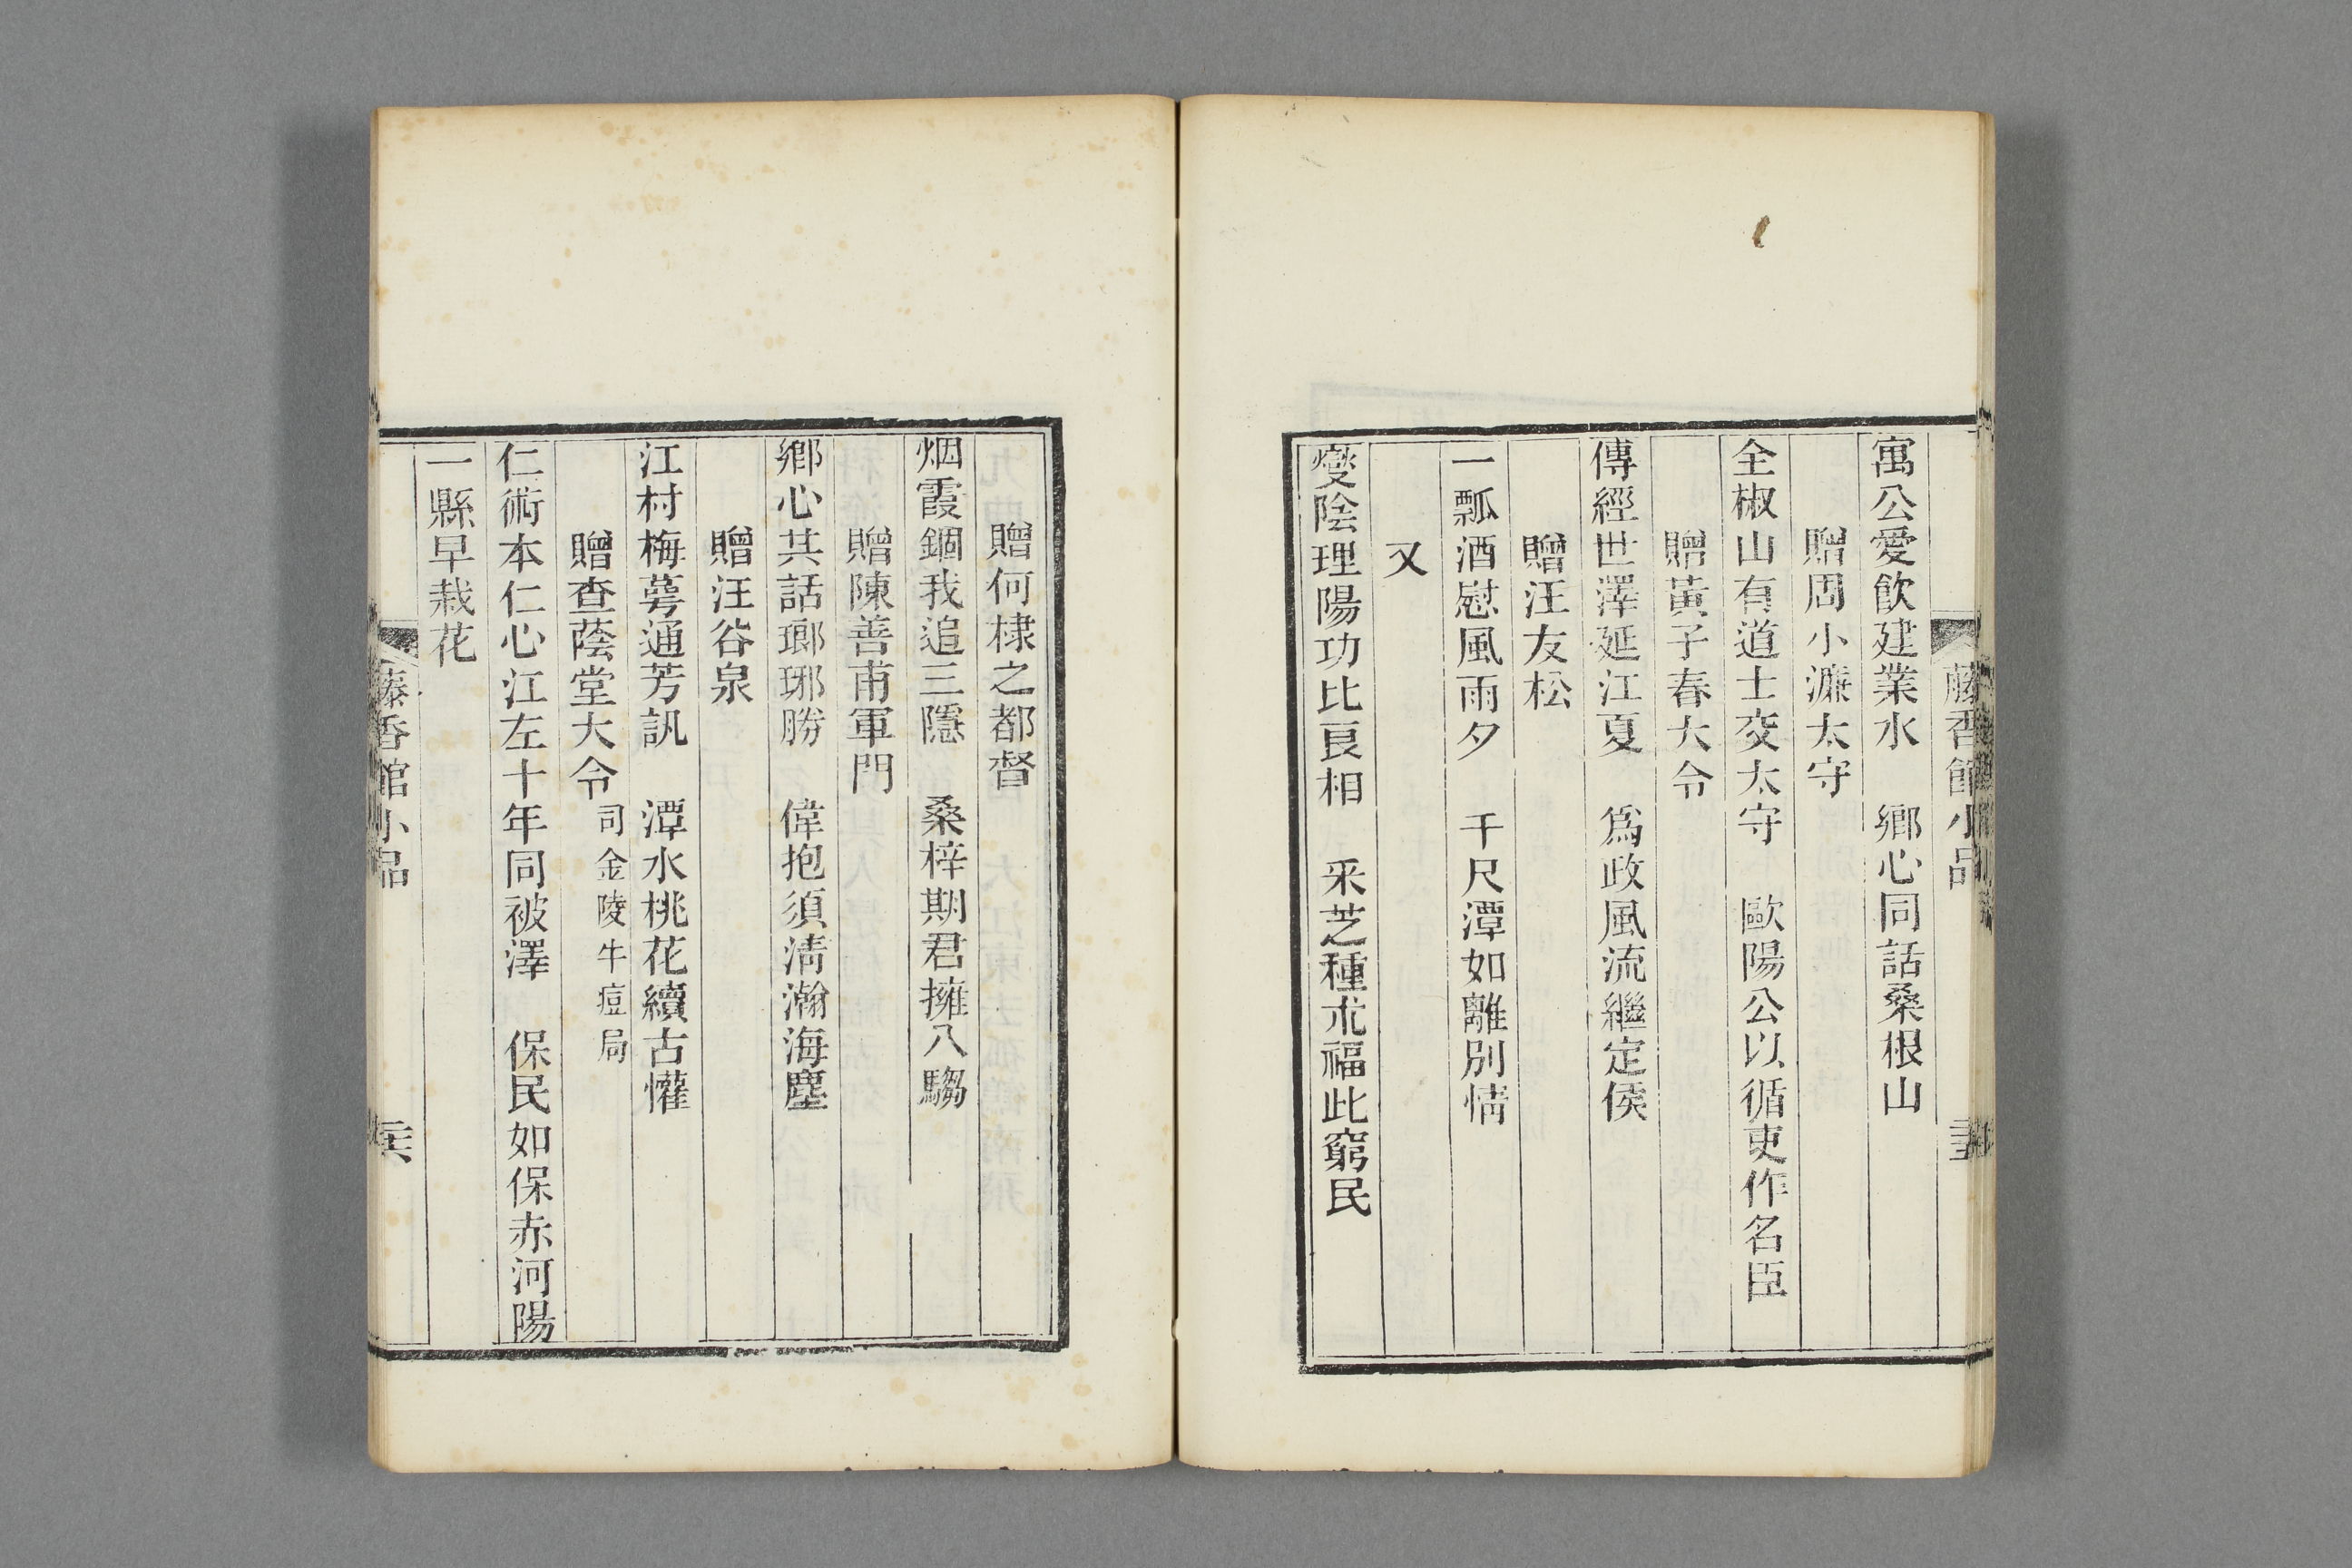 藤香館小品
寓公愛飲建業水　鄉心同話桑根山
贈周小濂太守
全椒山有道士交太守　歐陽公以循吏作名臣
贈黃子春大令
傳經世澤延江夏　爲政風流繼定侯
贈汪友松
一瓢酒慰風雨夕　千尺潭如離別情
又
燮陰理陽功比良相　采芝種朮福此窮民
贈何棣之都督
烟霞錮我追三隱　桑梓期君擁八騶
贈陳善甫軍門
鄉心共話瑯琊勝　偉抱須淸瀚海塵
贈汪谷泉
江村梅萼通芳訊　潭水桃花續古懽
贈查蔭堂大令司金陵牛痘局
仁術本仁心江左十年同被澤　保民如保赤河陽
一縣早栽花
藤香館小品